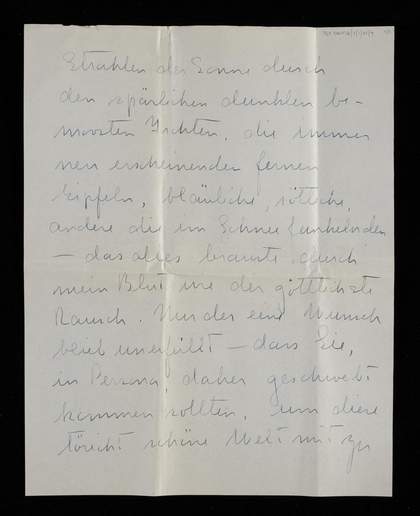 Strahlen der Sonne durch
den spärlichen dunklen be-
moosten Fichten, die immer
neu erscheinenden fernen
Gipfeln, bläuliche, rötliche,
andere die im Schnee funkelnden
— das alles brauste durch
mein Blut wie der göttlichste
Rausch. Nur der eine Wunsch
blieb unerfüllt — dass Sie,
in Persona, daher geschwebt
kommen sollten, um diese
töricht schöne Welt mit zu